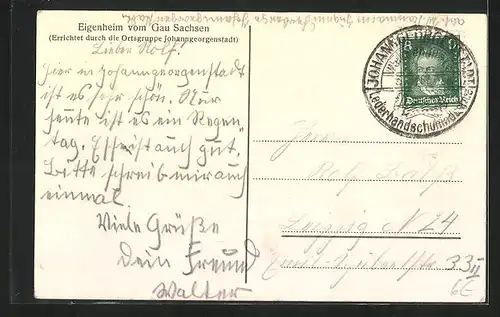 Eigenheim vom Gau Sachsen
(Errichtet durch die Ortsgruppe Johanngeorgenstadt)
Lieber Rolf!
Hier in Johanngeorgenstadt
ist es sehr schön. Nur
heute ist es ein Regen-
tag. Essen ist auch gut.
Bitte schreib mir auch
einmal.
Viele Grüße
Dein Freund
Walter
JOHANNGEORGENSTADT
Lederhandschuhindustrie
8
Deutsches Reich
Herrn
Rolf
Leipzig N 24
33 II